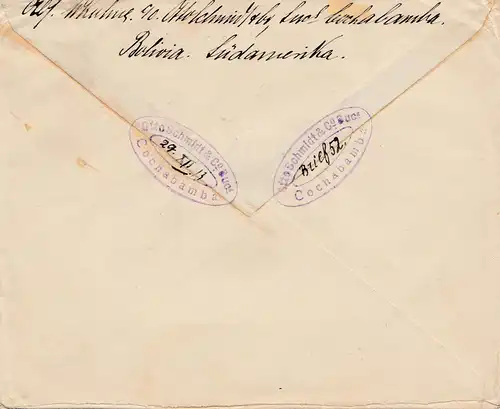 Abs. c/o Otto Schmidt & Co, Sucs Cochabamba.
Bolivia. Südamerika.
Otto Schmidt & Co Sucs
29. XII. 13
Cochabamba
Otto Schmidt & Co Sucs
Brief 52.
Cochabamba